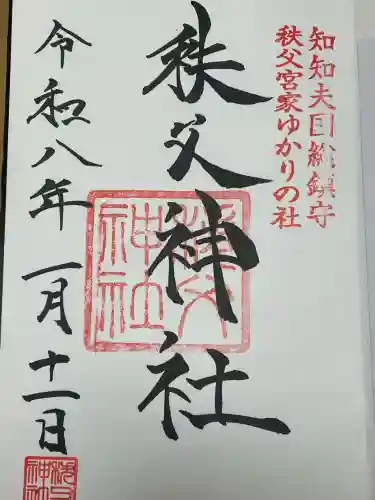 知知夫国総鎮守
秩父宮家ゆかりの社
秩父神社
令和八年一月十一日
秩父神社